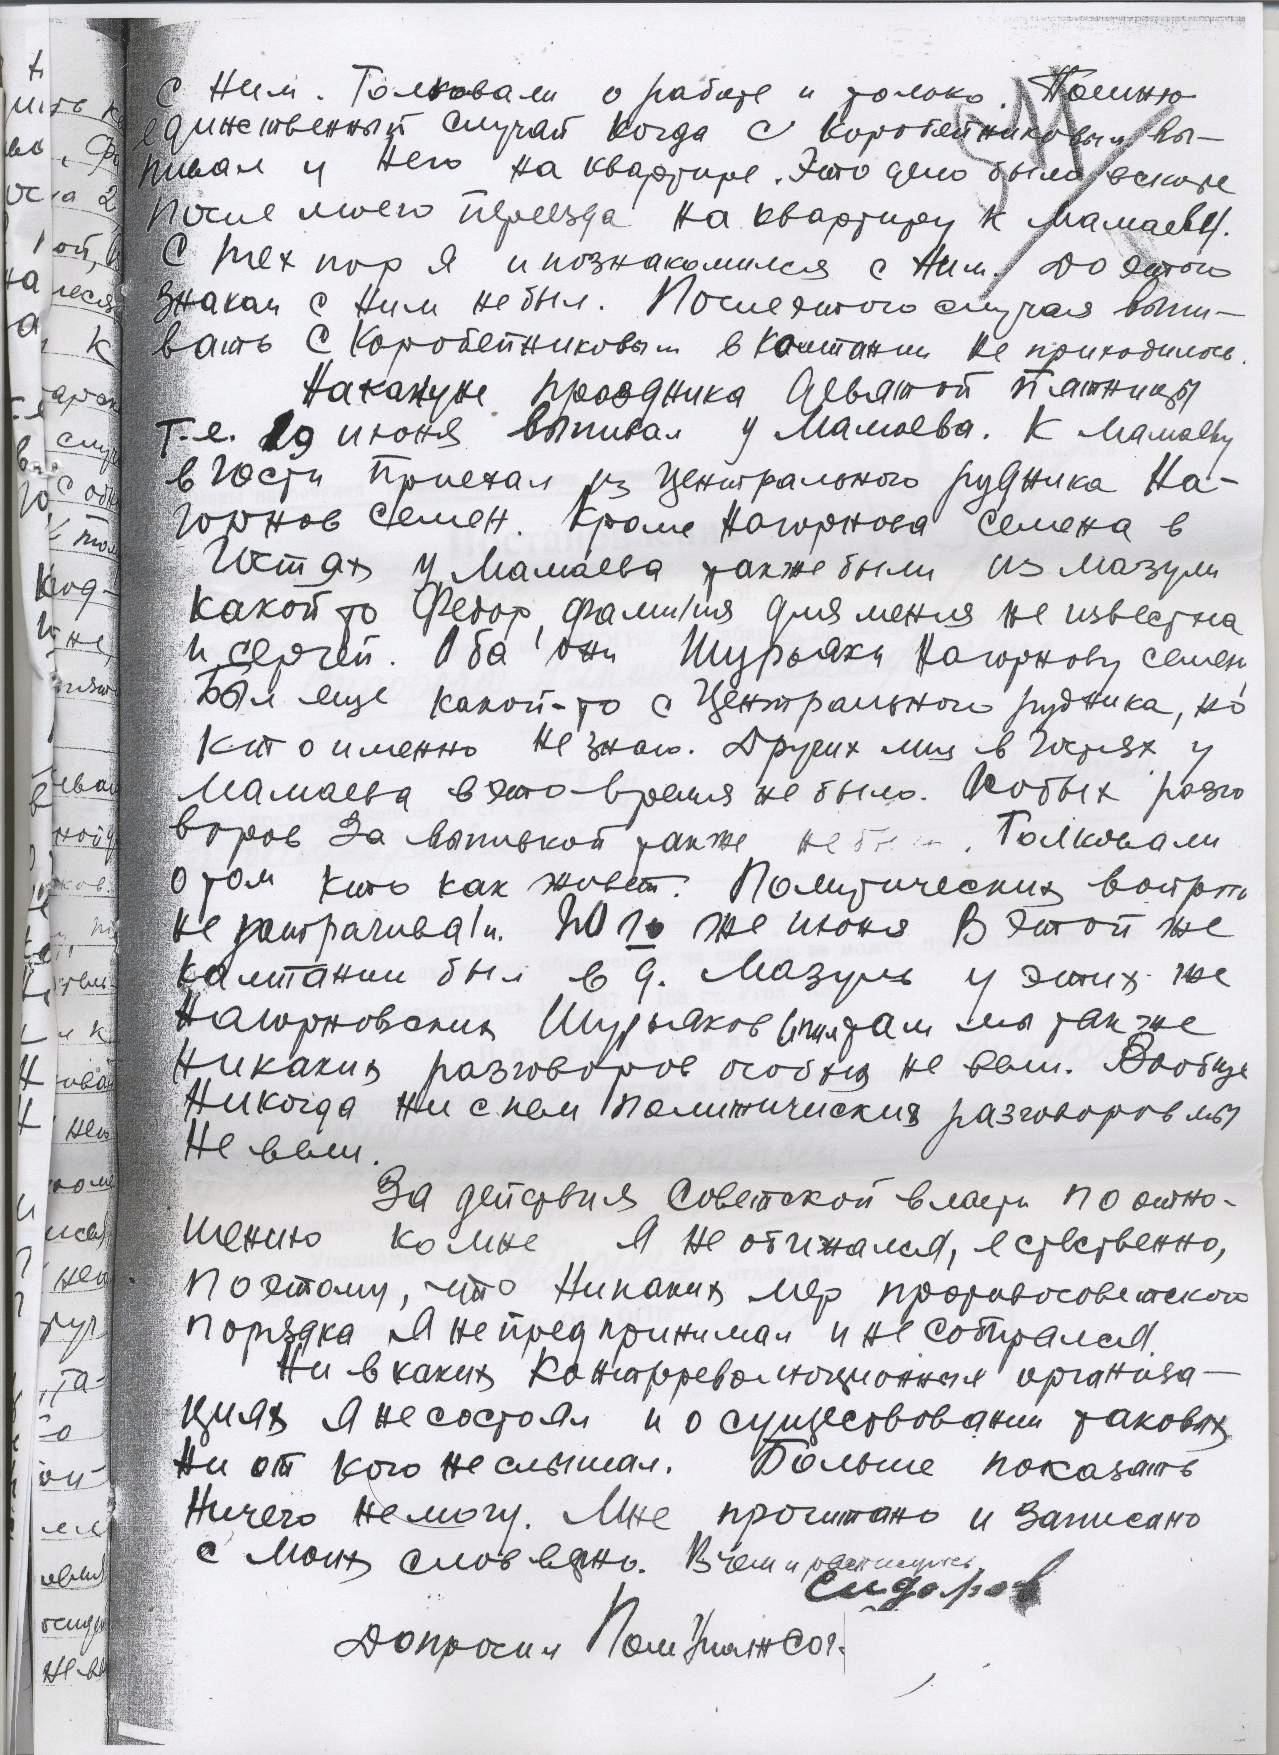 с ним. Толковали о работе и только. Помню
единственный случай когда с Коробейниковым вы-
пивал у него на квартире. Это дело было вскоре
после моего переезда на квартиру к Мамаеву.
С тех пор я и познакомился с ним. До этого
знаком с ним не был. После этого случая выпи-
вать с Коробейниковым в компании не приходилось.
Накануне праздника девятой пятницы
т.е. 19 июня выпивал у Мамаева. К Мамаеву
в гости приехал из Центрального рудника На-
горнов Семен. Кроме Нагорнова Семена в
гостях у Мамаева также были из Мазули
какой то Федор, фамилия для меня не известна
и Сергей. Оба они Шурьяки Нагорнову Семену
Был еще какой-то с Центрального рудника, но
кто именно не знаю. Других лиц в гостях у
Мамаева в это время не было. Особых разго
воров за выпивкой также не было. Толковали
о том кто как живет. Политических вопросов
не затрагивали. 20 го же июня в этой же
компании был в д. Мазуль у этих же
Нагорновских Шурьяков пили там мы также
никаких разговоров особых не вели. Вообще
никогда ни с кем политических разговоров мы
не вели.
За действия Советской власти по отно-
шению ко мне я не обижался, естественно,
поэтому, что никаких мер противосоветского
порядка я не предпринимал и не собирался.
Ни в каких контрреволюционных организа-
циях я не состоял и о существовании таковых
ни от кого не слышал. Больше показать
ничего не могу. Мне прочитано и записано
с моих слов верно. В чем и расписуюсь
Сидоров
Допросил